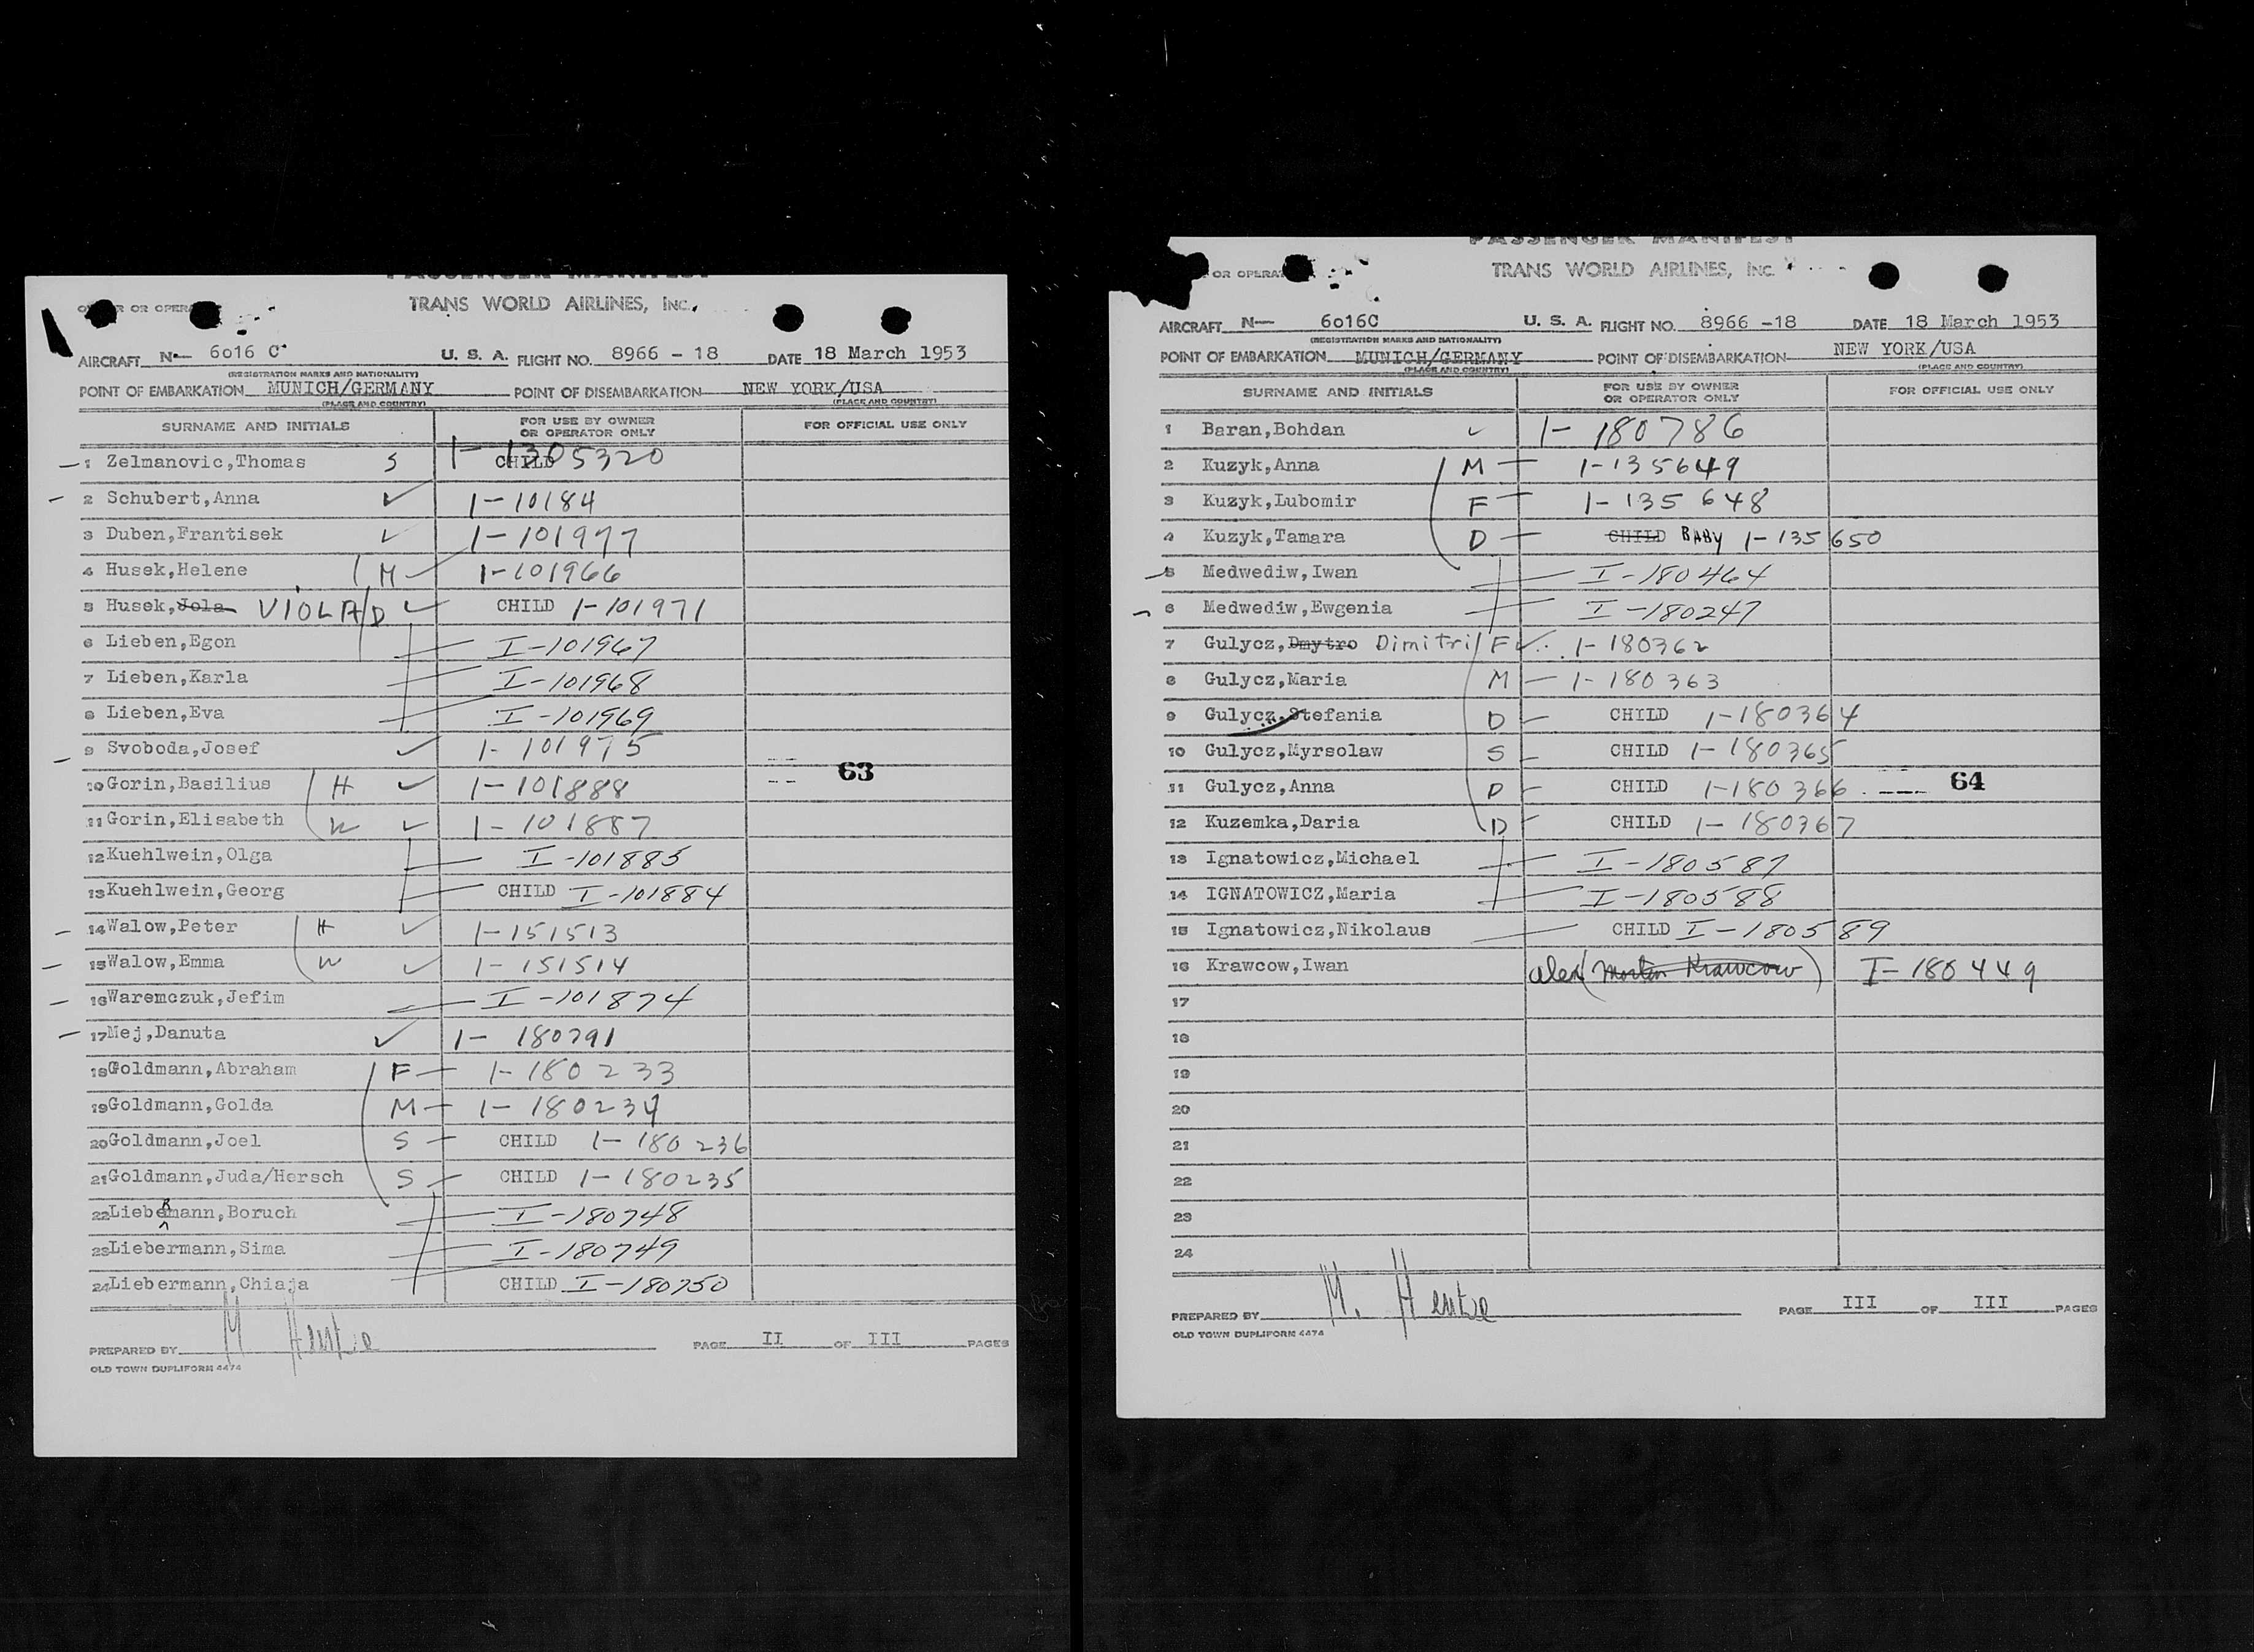 PASSENGER MANIFEST
OR OPERA
TRANS WORLD AIRLINES, INC.
AIRCRAFT N— 6o16 C U. S. A. FLIGHT NO. 8966 - 18 DATE 18 March 1953
(REGISTRATION MARKS AND NATIONALITY)
POINT OF EMBARKATION MUNICH/GERMANY POINT OF DISEMBARKATION NEW YORK/USA
(PLACE AND COUNTRY) (PLACE AND COUNTRY)
SURNAME AND INITIALS FOR USE BY OWNER OR OPERATOR ONLY FOR OFFICIAL USE ONLY
1 Zelmanovic,Thomas S CHILD 1-1305320
2 Schubert,Anna ✓ 1-10184
3 Duben,Frantisek ✓ 1-101977
4 Husek,Helene M 1-101966
5 Husek,Jola VIOLA D ✓ CHILD 1-101971
6 Lieben,Egon I-101967
7 Lieben,Karla I-101968
8 Lieben,Eva I-101969
9 Svoboda,Josef ✓ 1-101975
63
10 Gorin,Basilius H ✓ 1-101888
11 Gorin,Elisabeth W ✓ 1-101887
12 Kuehlwein,Olga I-101885
13 Kuehlwein,Georg CHILD I-101884
14 Walow,Peter H ✓ 1-151513
15 Walow,Emma W ✓ 1-151514
16 Waremczuk,Jefim I-101874
17 Mej,Danuta ✓ 1-180791
18 Goldmann,Abraham F 1-180233
19 Goldmann,Golda M 1-180234
20 Goldmann,Joel S CHILD 1-180236
21 Goldmann,Juda/Hersch S CHILD 1-180235
22 LiebeRmann,Boruch I-180748
23 Liebermann,Sima I-180749
24 Liebermann,Chiaja CHILD I-180750
PREPARED BY M Hentze PAGE II OF III PAGES
OLD TOWN DUPLIFORM 4474
PASSENGER MANIFEST
OR OPERA
TRANS WORLD AIRLINES, INC.
AIRCRAFT N— 6o16C U. S. A. FLIGHT NO. 8966 -18 DATE 18 March 1953
(REGISTRATION MARKS AND NATIONALITY)
POINT OF EMBARKATION MUNICH/GERMANY POINT OF DISEMBARKATION NEW YORK/USA
(PLACE AND COUNTRY) (PLACE AND COUNTRY)
SURNAME AND INITIALS FOR USE BY OWNER OR OPERATOR ONLY FOR OFFICIAL USE ONLY
1 Baran,Bohdan ✓ 1-180786
2 Kuzyk,Anna M 1-135649
3 Kuzyk,Lubomir F 1-135648
4 Kuzyk,Tamara D CHILD BABY 1-135650
5 Medwediw,Iwan I-180464
6 Medwediw,Ewgenia I-180247
7 Gulycz,Dmytro Dimitri F ✓ 1-180362
8 Gulycz,Maria M 1-180363
9 Gulycz,Stefania D CHILD 1-180364
10 Gulycz,Myrsolaw S CHILD 1-180365
11 Gulycz,Anna D CHILD 1-180366 64
12 Kuzemka,Daria D CHILD 1-180367
13 Ignatowicz,Michael I-180587
14 IGNATOWICZ,Maria I-180588
15 Ignatowicz,Nikolaus CHILD I-180589
16 Krawcow,Iwan Krawcow) I-180449
17
18
19
20
21
22
23
24
PREPARED BY M. Hentze PAGE III OF III PAGES
OLD TOWN DUPLIFORM 4474